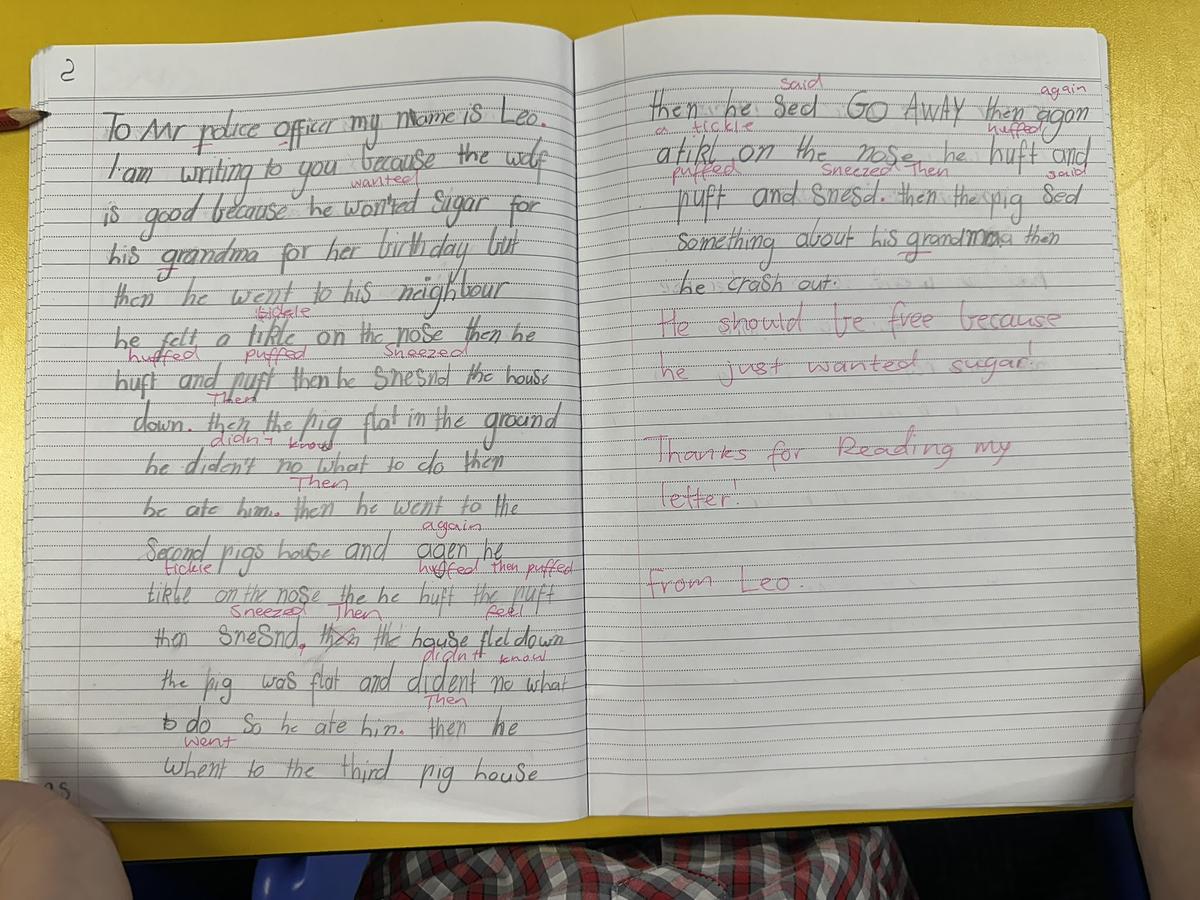 2
To Mr police officer my name is Leo.
I am writing to you because the wolf
wanted
is good because he won'ted Sigar for
his grandma for her birthday but
then he went to his neighbour
tickle
he felt a tikle on the nose then he
huffed puffed Sneezed
huft and puft then he Snesnd the house
Then
down. then the pig flat in the ground
didn't know
he diden't no what to do then
Then
he ate him. then he went to the
again
Second pigs house and agen he
tickle huffed then puffed
tikle on the nose the he huft the puft
Sneezed Then feel
then Snesnd. then the house flel down
didn't know
the pig was flat and dident no what
Then
to do So he ate him. then he
went
whent to the third pig house
said again
then he Sed GO AWAY then agon
a tickle huffed
atikl on the nose he huft and
puffed Sneezed Then said
puft and Snesd. then the pig Sed
something about his grandmma then
he crash out.
He should be free because
he just wanted sugar!
Thanks for Reading my
letter!
From Leo.